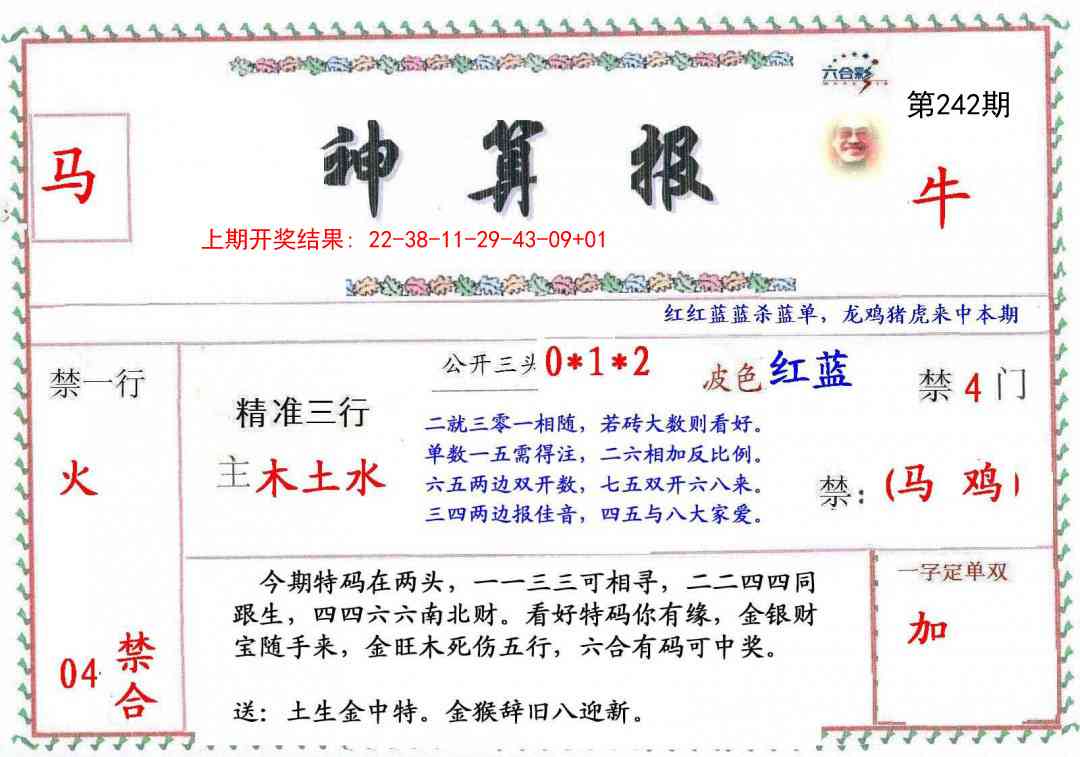 六合彩
第242期
马
神算报
牛
上期开奖结果：22-38-11-29-43-09+01
红红蓝蓝杀蓝单，龙鸡猪虎来中本期
禁一行
公开三头0*1*2
波色红蓝
禁4门
精准三行
二就三零一相随，若砖大数则看好。
单数一五需得注，二六相加反比例。
火
主木土水
六五两边双开数，七五双开六八来。
禁：(马 鸡)
三四两边报佳音，四五与八大家爱。
今期特码在两头，一一三三可相寻，二二四四同
跟生，四四六六南北财。看好特码你有缘，金银财
宝随手来，金旺木死伤五行，六合有码可中奖。
一字定单双
加
04禁合
送：土生金中特。金猴辞旧八迎新。